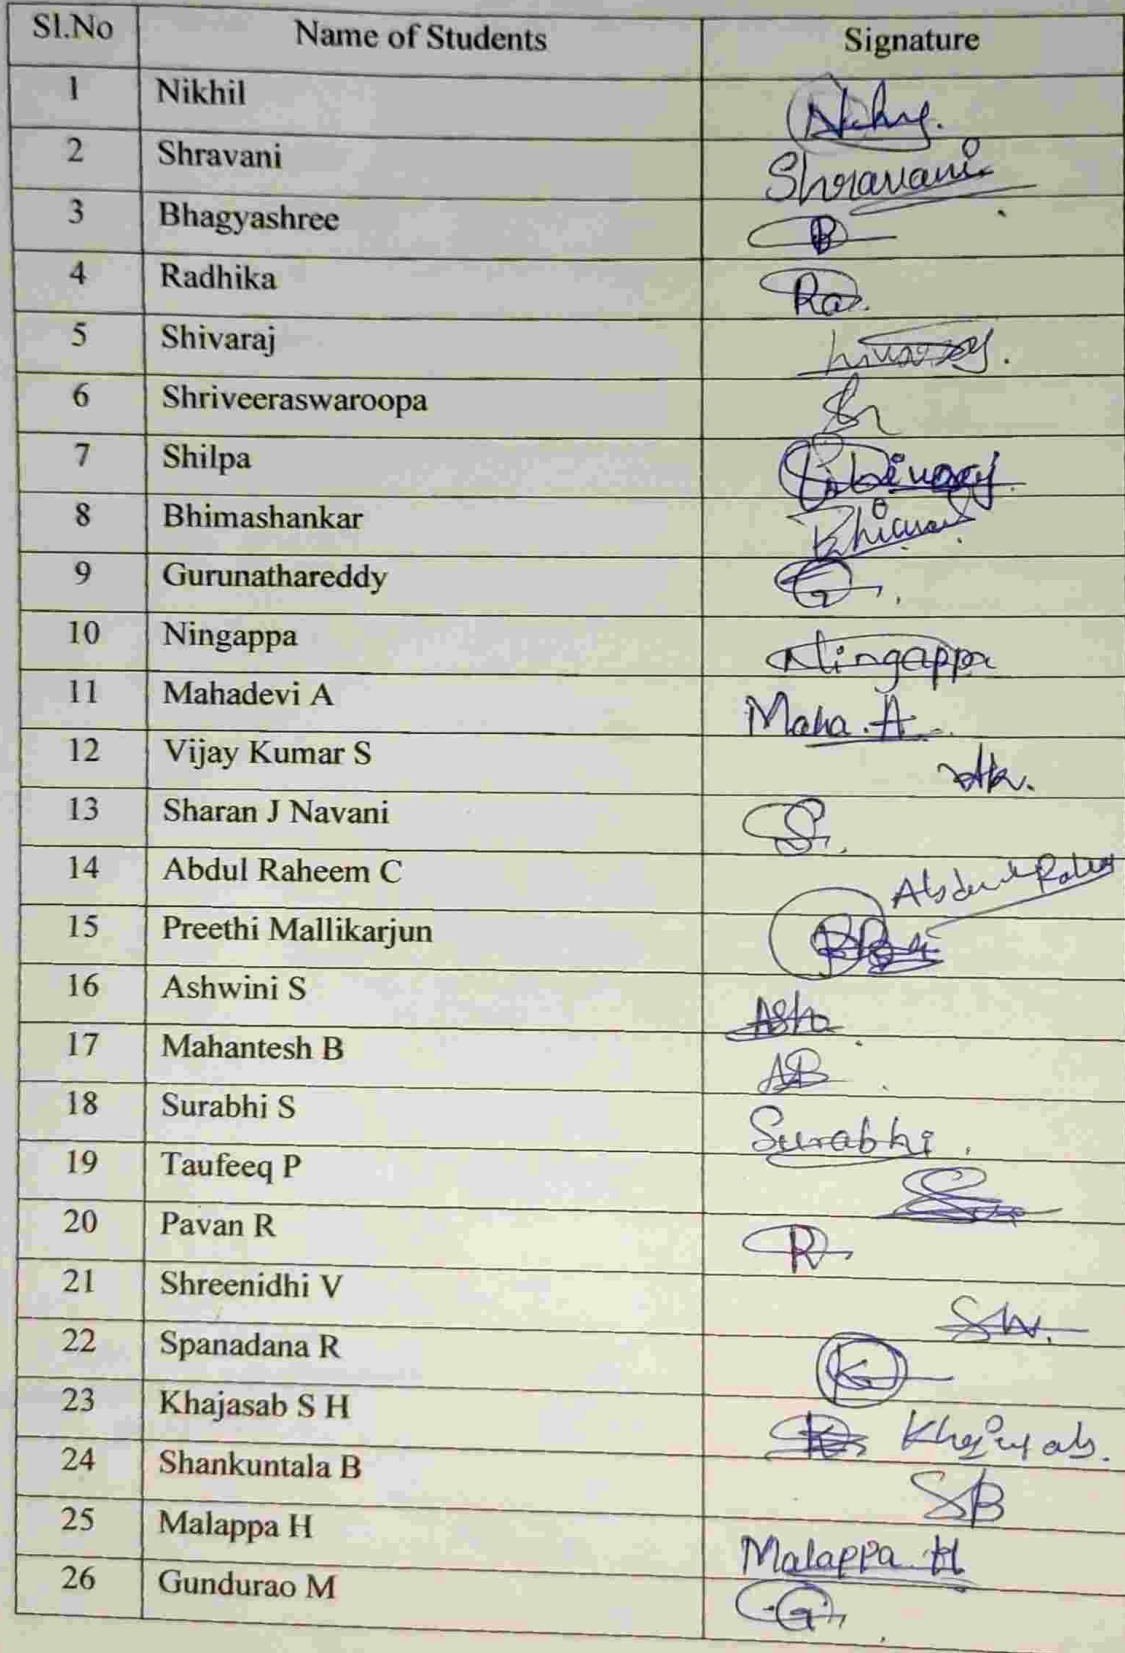 Sl.No Name of Students Signature
1 Nikhil
2 Shravani Shravani
3 Bhagyashree B
4 Radhika Ra
5 Shivaraj
6 Shriveeraswaroopa
7 Shilpa
8 Bhimashankar
9 Gurunathareddy G
10 Ningappa Ningappa
11 Mahadevi A Maha. A
12 Vijay Kumar S
13 Sharan J Navani S
14 Abdul Raheem C Abdul
15 Preethi Mallikarjun
16 Ashwini S Ash
17 Mahantesh B AB
18 Surabhi S Surabhi
19 Taufeeq P
20 Pavan R R
21 Shreenidhi V
22 Spanadana R K
23 Khajasab S H
24 Shankuntala B SB
25 Malappa H Malappa H
26 Gundurao M G